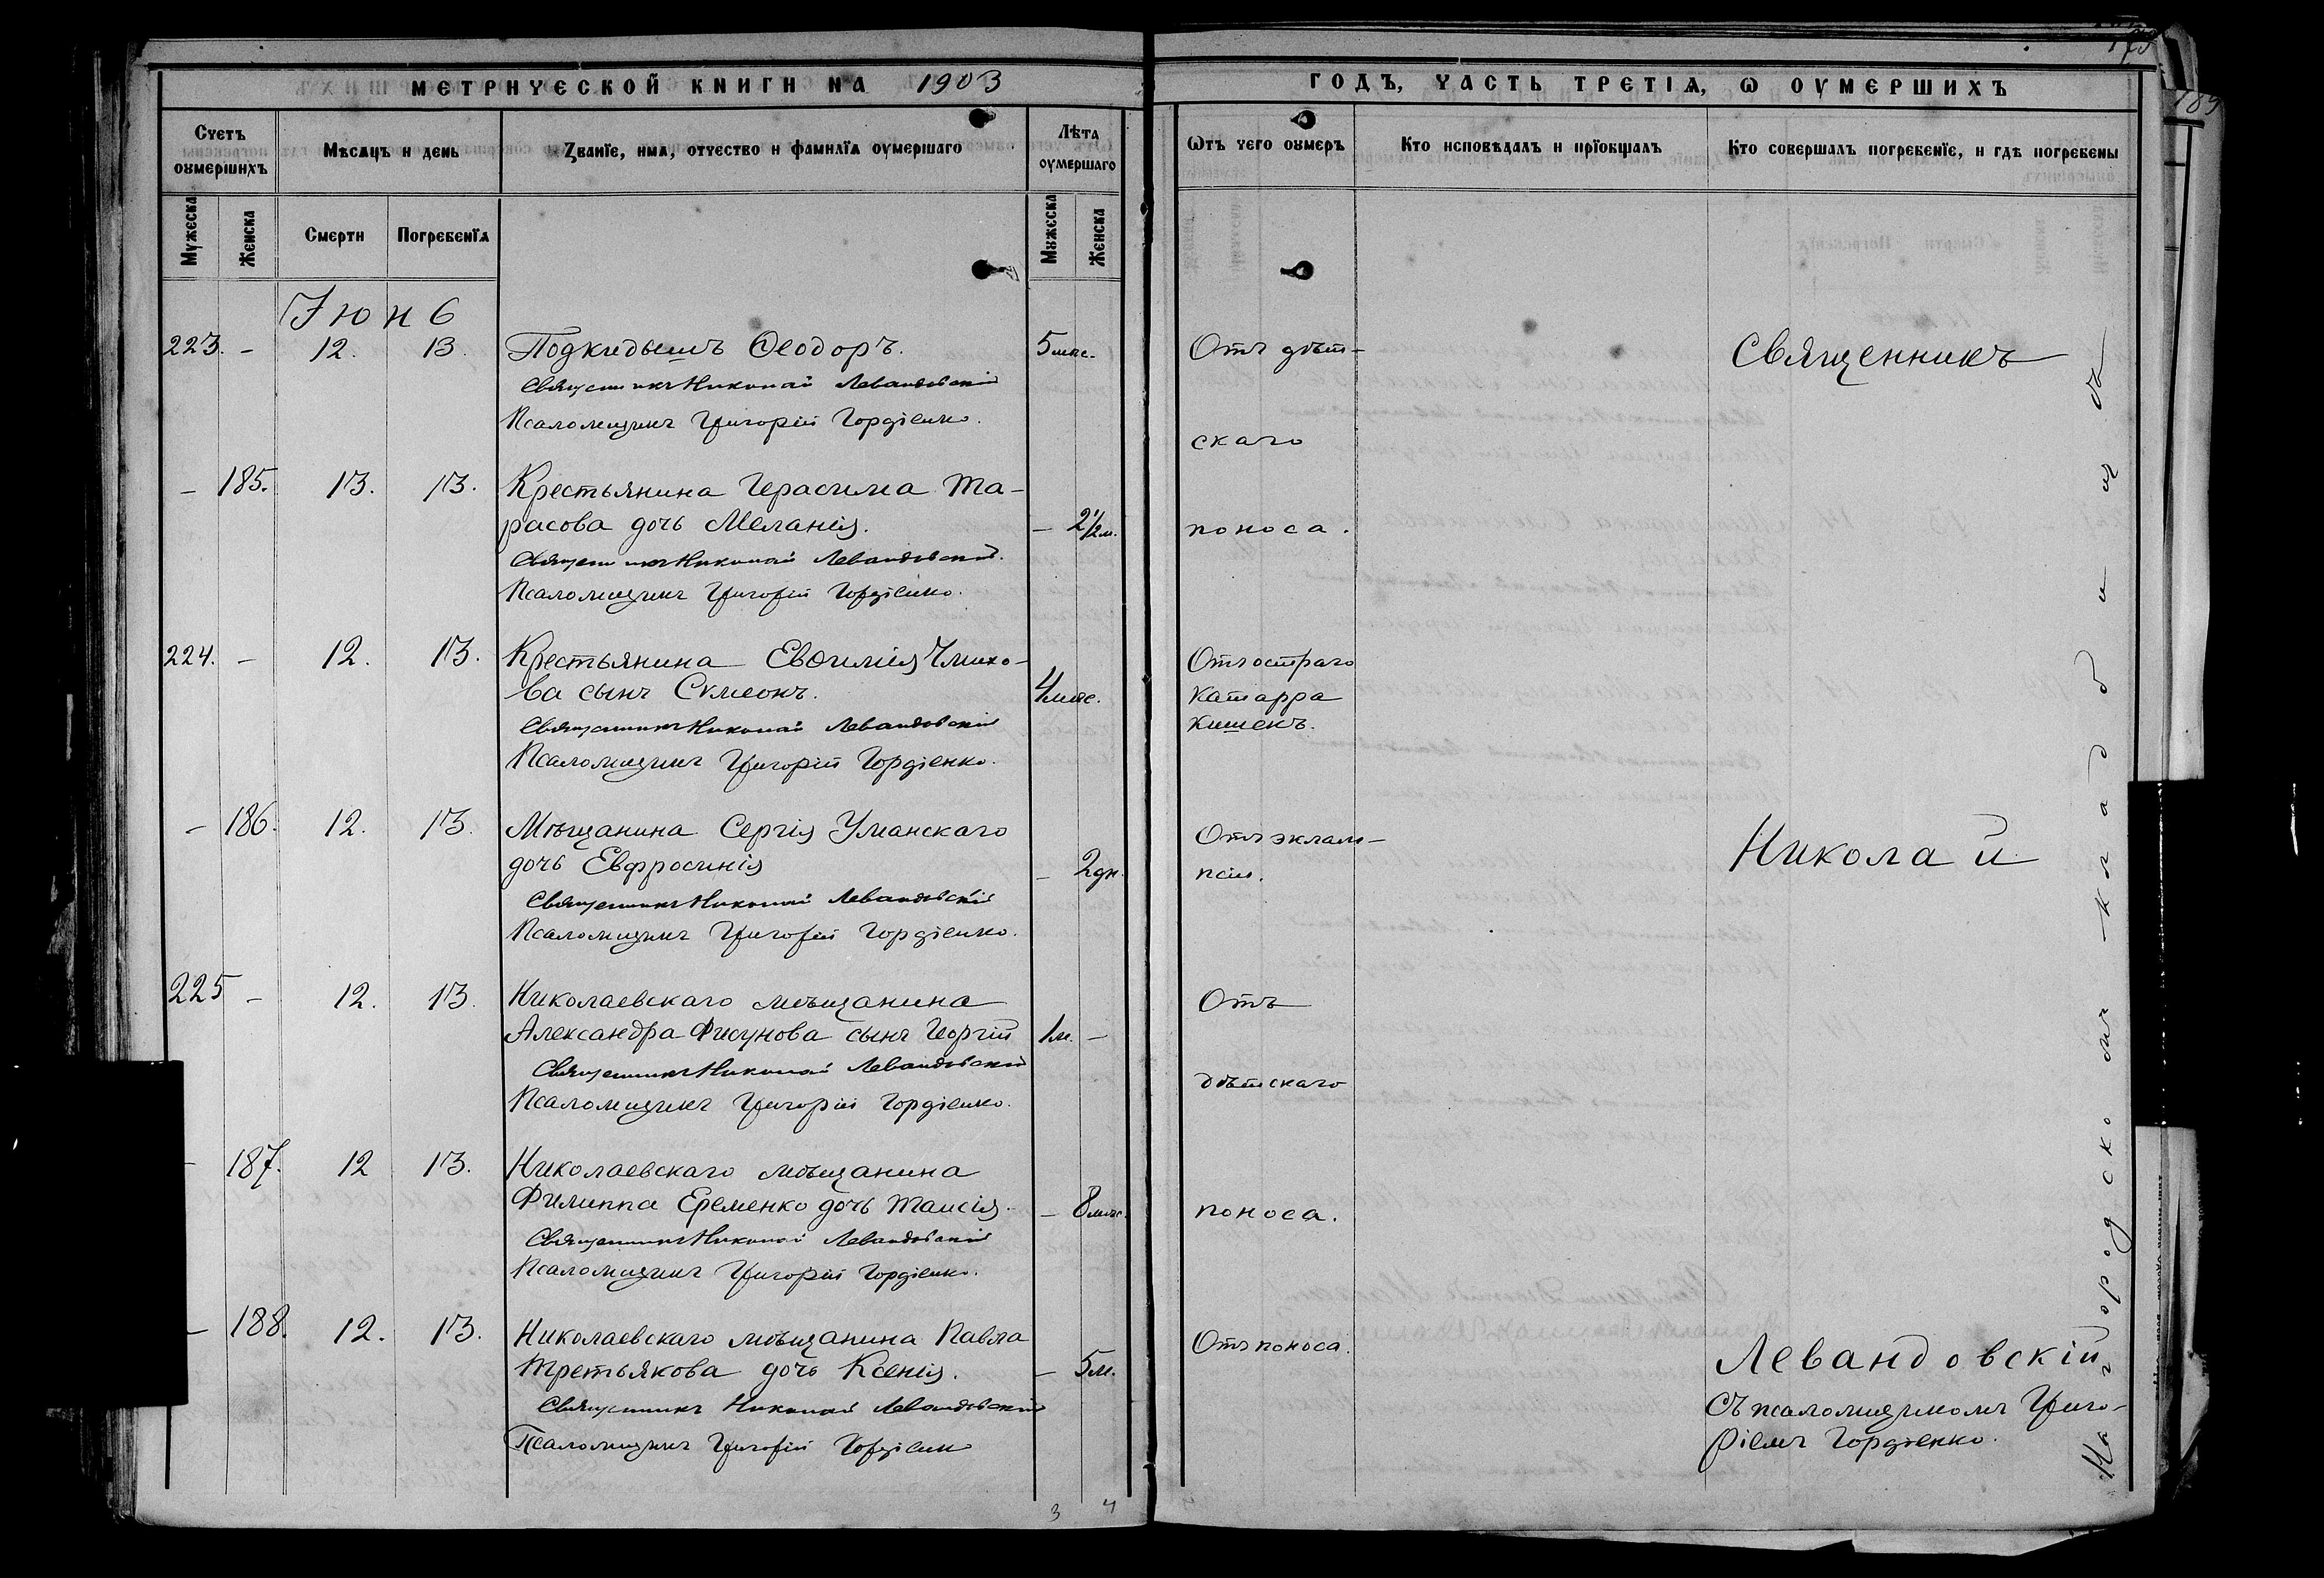 МЕТРИЧЕСКОЙ КНИГИ НА 1903
Счетъ оумершихъ
Мѣсяцъ и день
Званїе, имя, отчество и фамилїя оумершаго
Лѣта оумершаго
Мужеска
Женска
Смерти
Погребенїя
Мужеска
Женска
Іюнь
223. – 12. 13. Подкидышъ Ѳеодоръ. 5 мѣс.
Священникъ Николай Левандовскій
Псаломщикъ Григорій Гордіенко.
– 185. 13. 13. Крестьянина Герасима Та-
расова дочь Меланія. – 2 1/2 м.
Священникъ Николай Левандовскій.
Псаломщикъ Григорій Гордіенко.
224. – 12. 13. Крестьянина Евѳимія
ва сынъ Сѵмеонъ. 4 мѣс.
Священникъ Николай Левандовскій
Псаломщикъ Григорій Гордіенко.
– 186. 12. 13. Мѣщанина Сергія Уманскаго
дочь Евфросинія – 2 дн.
Священникъ Николай Левандовскій
Псаломщикъ Григорій Гордіенко.
225 – 12. 13. Николаевскаго мѣщанина
Александра Фисунова сынъ Георгій 1 м. –
Священникъ Николай Левандовскій
Псаломщикъ Григорій Гордіенко.
– 187. 12 13. Николаевскаго мѣщанина
Филиппа Еременко дочь Таисія. – 8 мѣс.
Священникъ Николай Левандовскій
Псаломщикъ Григорій Гордіенко.
– 188. 12. 13. Николаевскаго мѣщанина Павла
Третьякова дочь Ксенія. – 5 м.
Священникъ Николай Левандовскій
Псаломщикъ Григорій Гордіенко
3 4
ГОДЪ, ЧАСТЬ ТРЕТІЯ, Ѡ ОУМЕРШИХЪ
Ѿтъ чего оумеръ
Кто исповѣдалъ и прїобщалъ
Кто совершалъ погребенїе, и гдѣ погребены
Отъ дѣт-
скаго
поноса.
Отъ остраго
катарра
кишекъ.
Отъ эклам-
псіи.
Отъ
дѣтскаго
поноса.
Отъ поноса.
Священникъ
Николай
Левандовскій
съ псаломщикомъ Григо-
ріемъ Гордіенко.
На городскомъ кладбищѣ
189